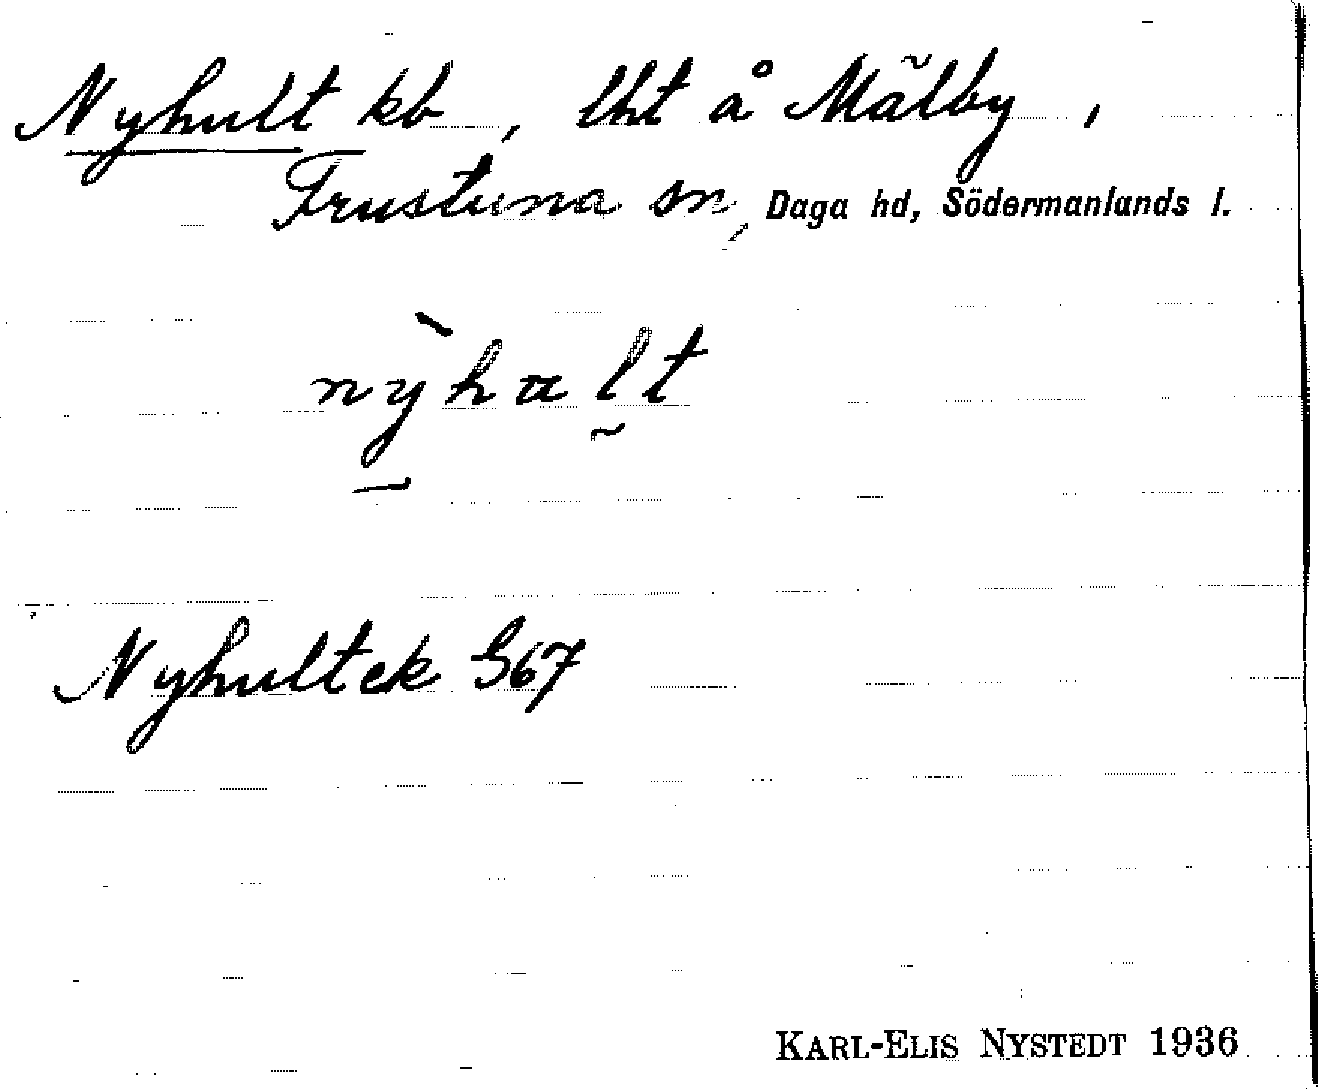 Nyhult kb, lht å Mälby,
Frustuna sn, Daga hd, Södermanlands l.
nỳ̱hal̰t
Nyhult ek G67
KARL-ELIS NYSTEDT 1936